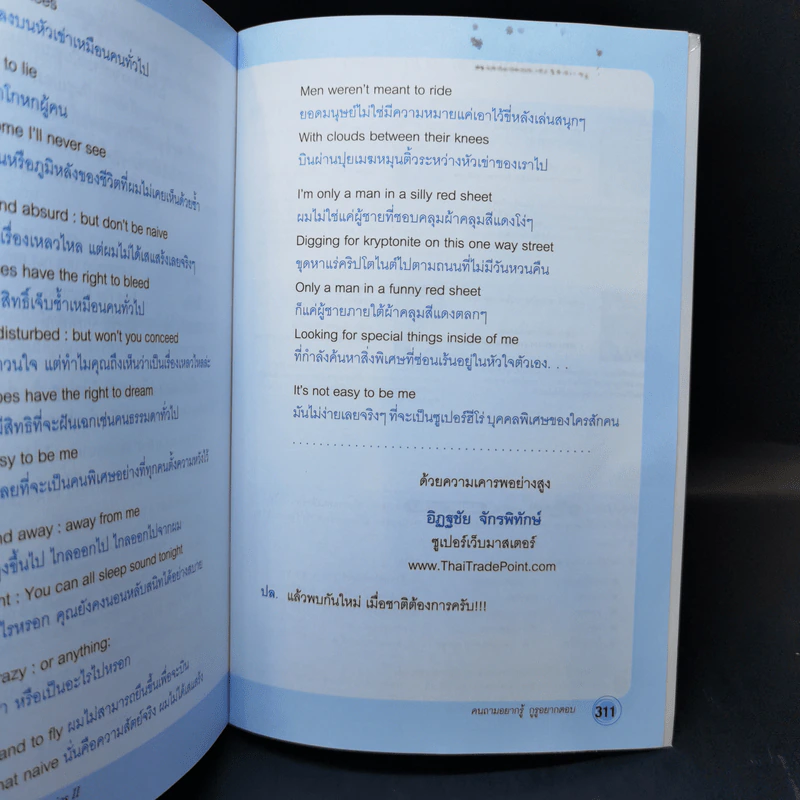 ลงบนหัวเข่าเหมือนคนทั่วไป
to lie
โกหกผู้คน
ome I'll never see
นหรือภูมิหลังของชีวิตที่ผมไม่เคยเห็นด้วยซ้ำ
nd absurd : but don't be naive
เรื่องเหลวไหล แต่ผมไม่ได้เสแสร้งเลยจริงๆ
oes have the right to bleed
สิทธิ์เจ็บช้ำเหมือนคนทั่วไป
disturbed : but won't you conceed
กวนใจ แต่ทำไมคุณถึงเห็นว่าเป็นเรื่องเหลวไหลล่ะ
oes have the right to dream
มีสิทธิที่จะฝันเฉกเช่นคนธรรมดาทั่วไป
sy to be me
เลยที่จะเป็นคนพิเศษอย่างที่ทุกคนตั้งความหวังไว้
nd away : away from me
งขึ้นไป ไกลออกไป ไกลออกไปจากผม
nt : You can all sleep sound tonight
ไรหรอก คุณยังคงนอนหลับสนิทได้อย่างสบาย
razy : or anything:
า หรือเป็นอะไรไปหรอก
and to fly ผมไม่สามารถยืนขึ้นเพื่อจะบิน
hat naive นั่นคือความสัตย์จริง ผมไม่ได้เสแสร้ง
Men weren't meant to ride
ยอดมนุษย์ไม่ใช่มีความหมายแค่เอาไว้ขี่หลังเล่นสนุกๆ
With clouds between their knees
บินผ่านปุยเมฆหมุนติ้วระหว่างหัวเข่าของเราไป
I'm only a man in a silly red sheet
ผมไม่ใช่แค่ผู้ชายที่ชอบคลุมผ้าคลุมสีแดงโง่ๆ
Digging for kryptonite on this one way street
ขุดหาแร่คริปโตไนต์ไปตามถนนที่ไม่มีวันหวนคืน
Only a man in a funny red sheet
ก็แค่ผู้ชายภายใต้ผ้าคลุมสีแดงตลกๆ
Looking for special things inside of me
ที่กำลังค้นหาสิ่งพิเศษที่ซ่อนเร้นอยู่ในหัวใจตัวเอง. . .
It's not easy to be me
มันไม่ง่ายเลยจริงๆ ที่จะเป็นซูเปอร์ฮีโร่ บุคคลพิเศษของใครสักคน
ด้วยความเคารพอย่างสูง
อิฏฐชัย จักรพิทักษ์
ซูเปอร์เว็บมาสเตอร์
www.ThaiTradePoint.com
ปล. แล้วพบกันใหม่ เมื่อชาติต้องการครับ!!!
คนถามอยากรู้ กูรูอยากตอบ 311